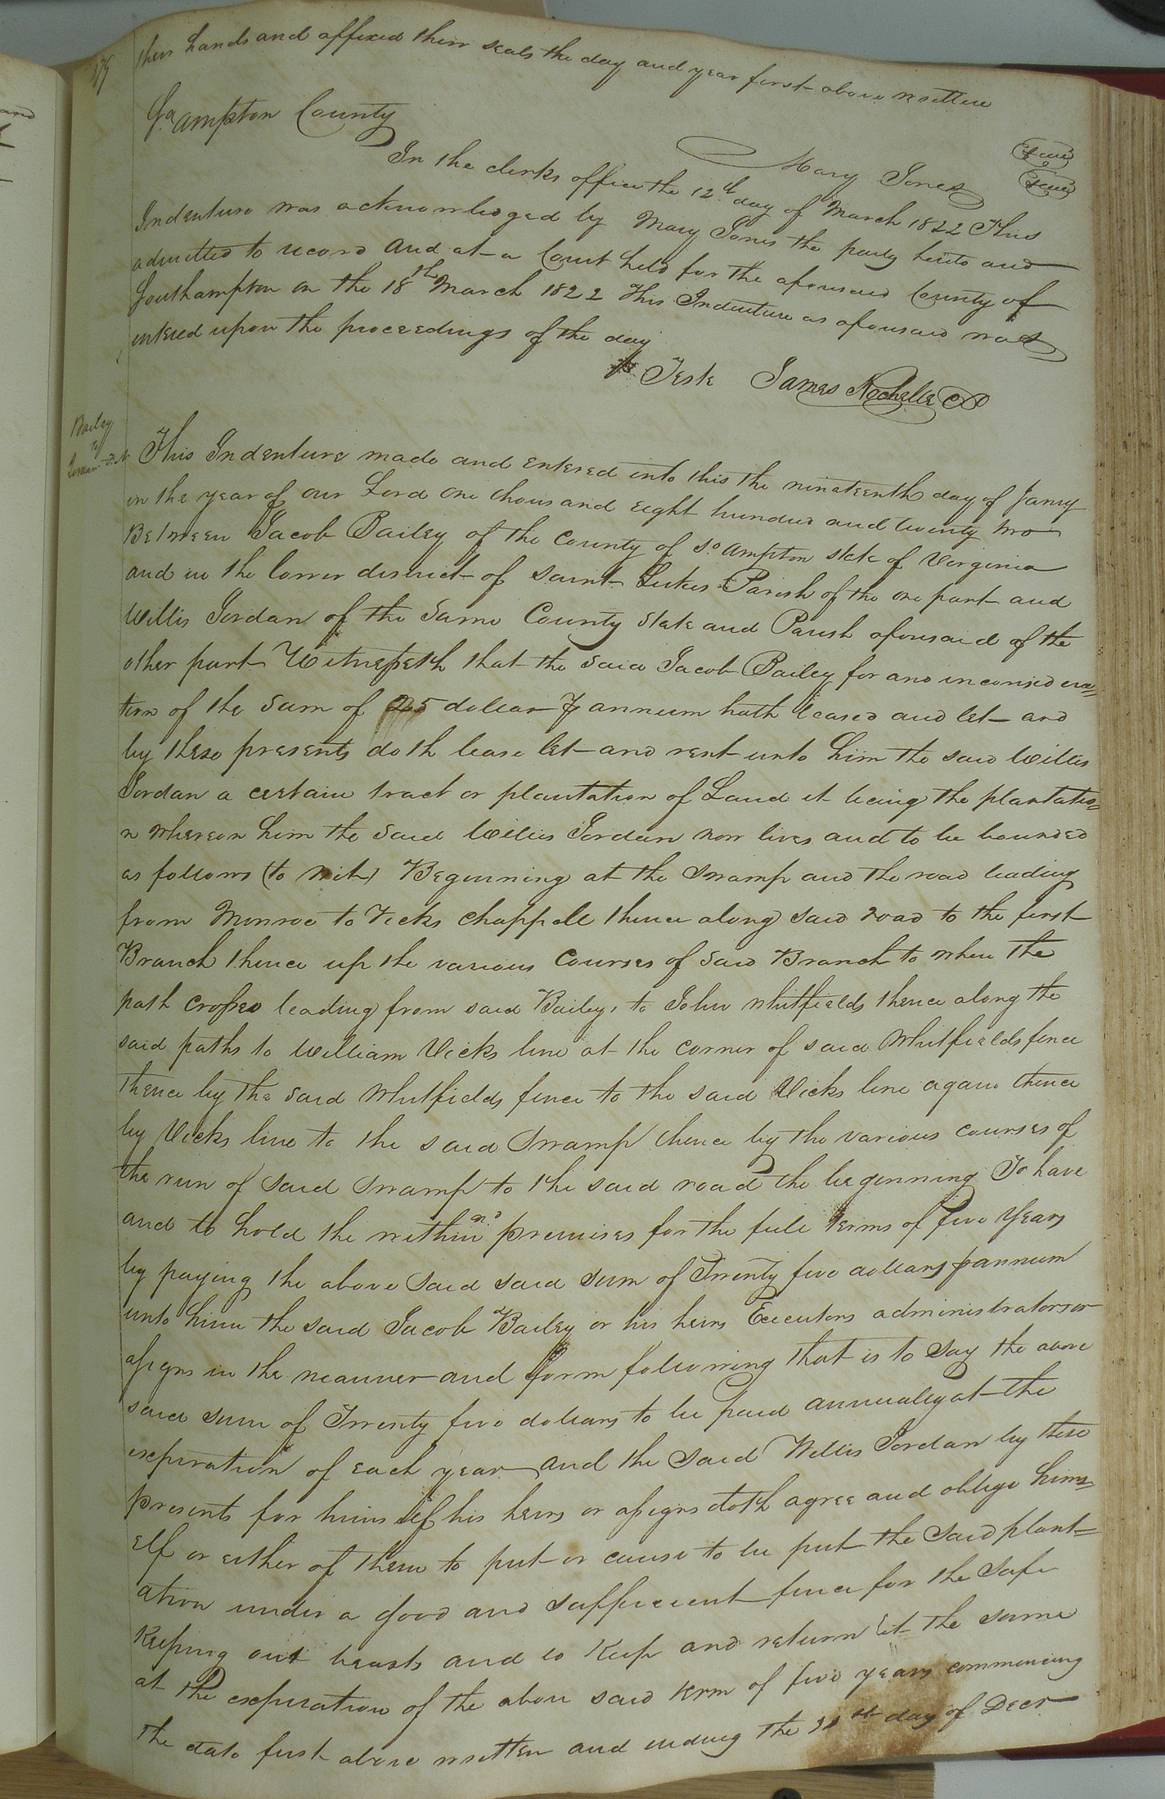 their hands and affixed their seals the day and year first above written
Mary Jones
Seal
Seal
So ampton County
In the clerks office the 12th day of March 1822 This
Indenture was acknowledged by Mary Jones the party hereto and
admitted to record and at a Court held for the aforesaid County of
Southampton on the 18th March 1822 This Indenture as aforesaid was
entered upon the proceedings of the day
Teste James Rochelle
Bailey
to
Jordan
This Indenture made and entered into this the nineteenth day of Jany
in the year of our Lord one thousand eight hundred and twenty two
Between Jacob Bailey of the County of So ampton state of Virginia
and in the lower district of Saint Lukes Parish of the one part and
Willis Jordan of the Same County State and Parish aforesaid of the
other part Witnesseth that the said Jacob Bailey for and in considera=
tion of the Sum of 25 dollar P annum hath leased and let and
by these presents doth lease let and rent unto him the said Willis
Jordan a certain tract or plantation of Land it being the plantatio=
n whereon him the said Willis Jordan now lives and to be bounded
as follows (to wit) Beginning at the Swamp and the road leading
from Monroe to Vicks Chappell thence along said road to the first
Branch thence up the various Courses of said Branch to where the
path crosses leading from said Baileys to John Whitfields thence along the
said paths to William Vicks line at the corner of said Whitfields fence
thence by the said Whitfields fence to the said Vicks line again thence
by Vicks line to the said Swamp thence by the various courses of
the run of said Swamp to the said road the beginning To have
and to hold the within premises for the full terms of five years
by paying the above said said sum of Twenty five dollars p annum
unto him the said Jacob Bailey or his heirs Executors administrators or
assigns in the manner and form following that is to say the above
said sum of Twenty five dollars to be paid annualey at the
expiration of each year and the said Willis Jordan by these
presents for himself his heirs or assigns doth agree and oblige hims=
elf or either of them to put or cause to be put the said plant=
ation under a good and sufficient fence for the safe
keeping out beasts and to keep and return it the same
at the expiration of the above said term of five years commencing
the date first above written and ending the day of Decr